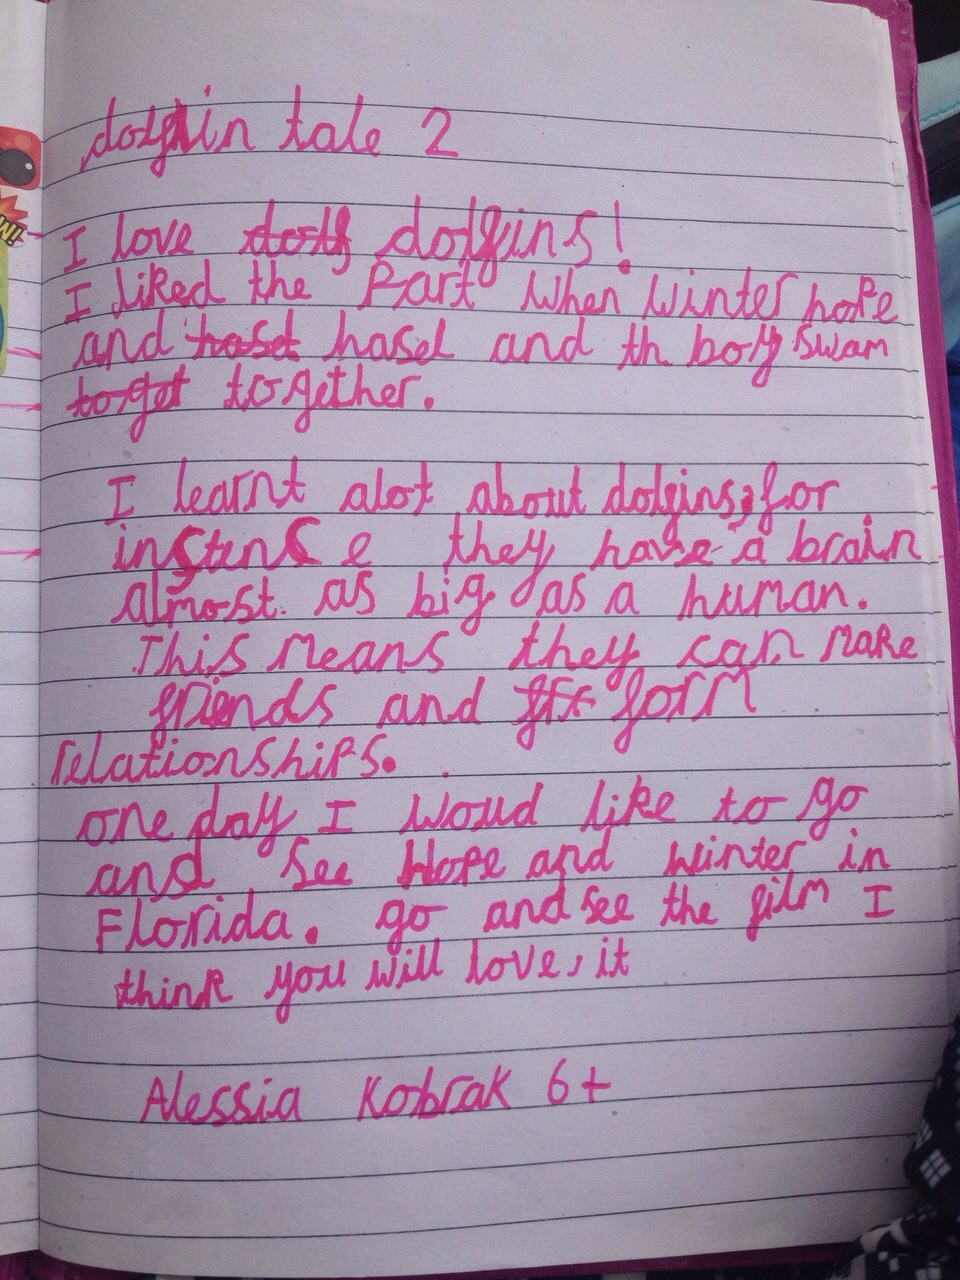 dolphin tale 2
I love dolfins!
I liked the Part when Winter hope
and hasel and th boy swam
together.
I learnt alot about dolfins, for
instense they have a brain
almost as big as a human.
This means they can make
friends and form
relationships.
one day I woud like to go
and see Hope and Winter in
Florida. go and see the film I
think you will love, it
Alessia Kobrak 6+